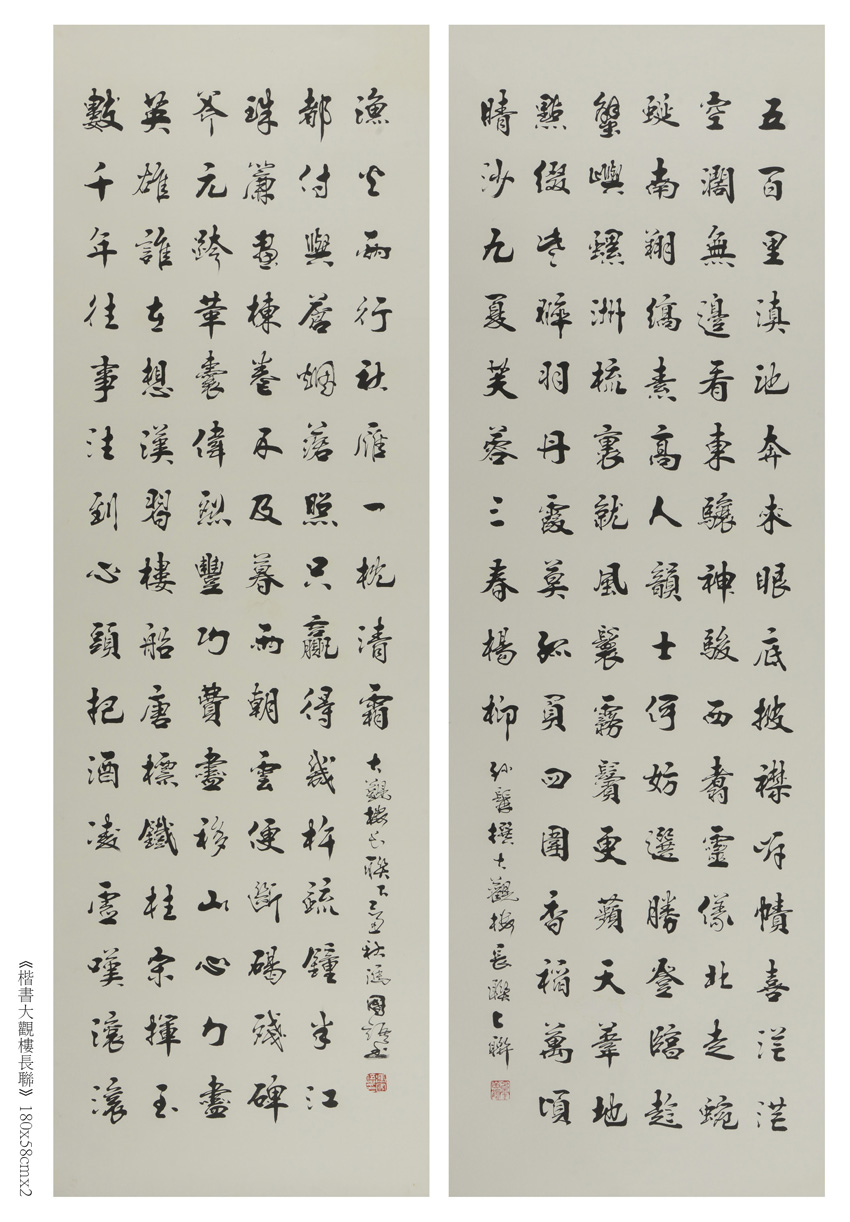 五百里滇池奔來眼底披襟岸幘喜茫茫
空闊無邊看東驤神駿西翥靈儀北走蜿
蜒南翔縞素高人韻士何妨選勝登臨趁
蟹嶼螺洲梳裹就風鬟霧鬢更蘋天葦地
點綴些翠羽丹霞莫孤負四圍香稻萬頃
晴沙九夏芙蓉三春楊柳
孫髯撰大觀樓長聯上聯
數千年往事注到心頭把酒凌虛嘆滾滾
英雄誰在想漢習樓船唐標鐵柱宋揮玉
斧元跨革囊偉烈豐功費盡移山心力盡
珠簾畫棟卷不及暮雨朝雲便斷碣殘碑
都付與蒼烟落照只贏得幾杵疏鐘半江
漁火兩行秋雁一枕清霜
大觀樓長聯下 秋馮國語書
《楷書大觀樓長聯》180x58cmx2